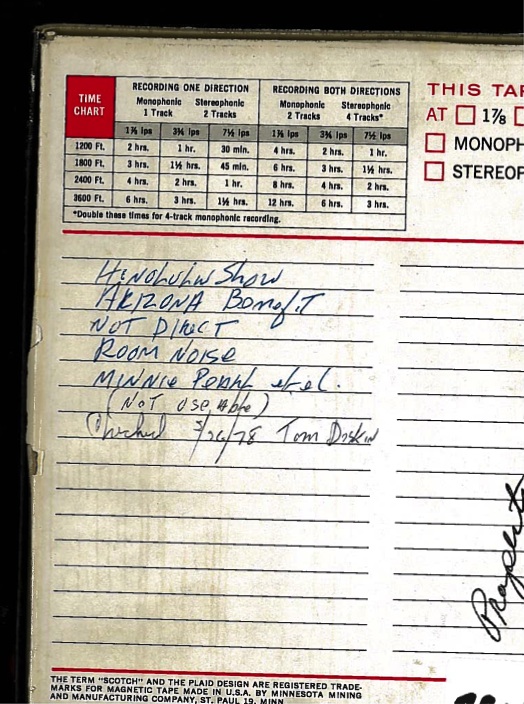 TIME CHART
RECORDING ONE DIRECTION
RECORDING BOTH DIRECTIONS
Monophonic 1 Track
Stereophonic 2 Tracks
Monophonic 2 Tracks
Stereophonic 4 Tracks*
1⅞ ips 3¾ ips 7½ ips 1⅞ ips 3¾ ips 7½ ips
1200 Ft. 2 hrs. 1 hr. 30 min. 4 hrs. 2 hrs. 1 hr.
1800 Ft. 3 hrs. 1½ hrs. 45 min. 6 hrs. 3 hrs. 1½ hrs.
2400 Ft. 4 hrs. 2 hrs. 1 hr. 8 hrs. 4 hrs. 2 hrs.
3600 Ft. 6 hrs. 3 hrs. 1½ hrs. 12 hrs. 6 hrs. 3 hrs.
*Double these times for 4-track monophonic recording.
THIS TAP
AT 1⅞
MONOPH
STEREOP
Honolulu Show
ARIZONA Benefit
NOT DIRECT
ROOM NOISE
MINNIE Pearl et el.
(NOT USE Able)
Checked 3/26/78 Tom Diskin
THE TERM "SCOTCH" AND THE PLAID DESIGN ARE REGISTERED TRADE-
MARKS FOR MAGNETIC TAPE MADE IN U.S.A. BY MINNESOTA MINING
AND MANUFACTURING COMPANY, ST. PAUL 19, MINN